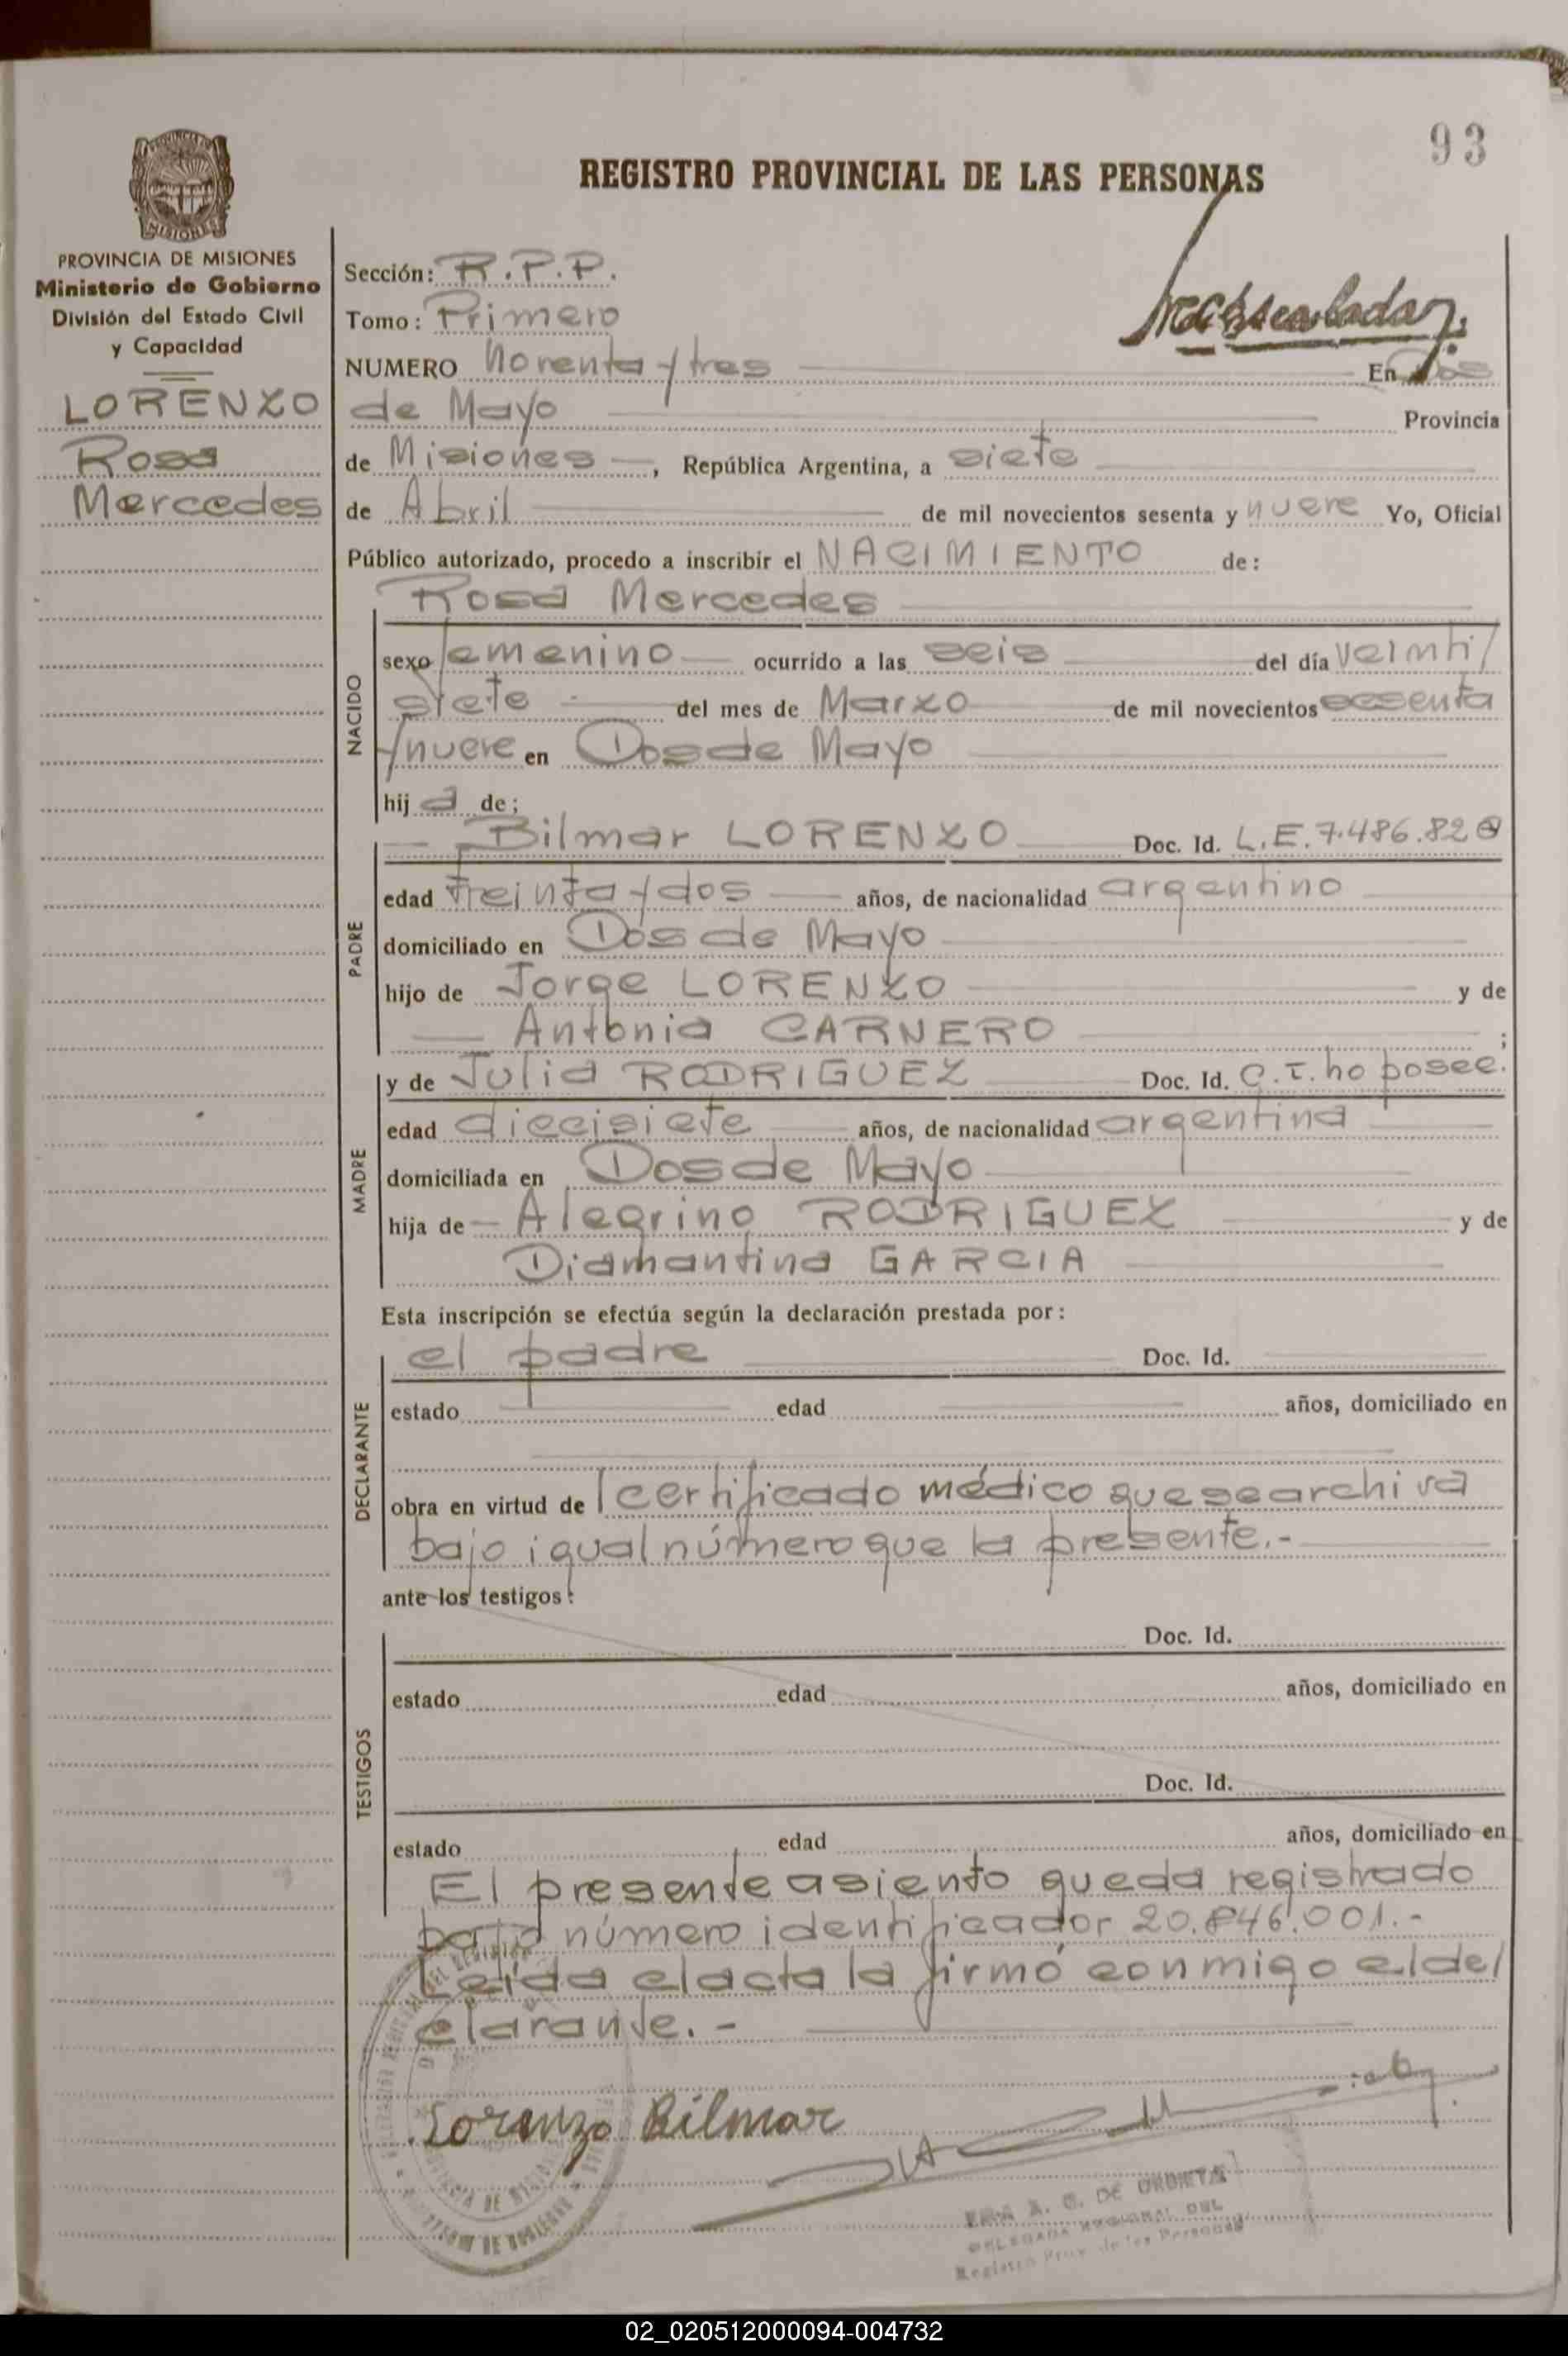 93
REGISTRO PROVINCIAL DE LAS PERSONAS
PROVINCIA DE MISIONES
Ministerio de Gobierno
División del Estado Civil
y Capacidad
LORENZO
Rosa
Mercedes
Sección: R.P.P.
Tomo: Primero
NUMERO Noventa y tres En Dos
de Mayo Provincia
de Misiones, República Argentina, a siete
de Abril de mil novecientos sesenta y nueve Yo, Oficial
Público autorizado, procedo a inscribir el NACIMIENTO de:
Rosa Mercedes
NACIDO
sexo femenino ocurrido a las seis del día veinti/
siete del mes de Marzo de mil novecientos sesenta
y nueve en Dos de Mayo
hij a de;
Bilmar LORENZO Doc. Id. L.E. 7.486.820
PADRE
edad treinta y dos años, de nacionalidad argentino
domiciliado en Dos de Mayo
hijo de Jorge LORENZO y de
Antonia CARNERO ;
y de Julia RODRIGUEZ Doc. Id. C.I. no posee.
MADRE
edad diecisiete años, de nacionalidad argentina
domiciliada en Dos de Mayo
hija de Alegrino RODRIGUEZ y de
Diamantina GARCIA
Esta inscripción se efectúa según la declaración prestada por:
el padre Doc. Id.
DECLARANTE
estado edad años, domiciliado en
obra en virtud de l certificado médico que se archiva
bajo igual número que la presente.-
ante los testigos:
Doc. Id.
TESTIGOS
estado edad años, domiciliado en
Doc. Id.
estado edad años, domiciliado en
El presente asiento queda registrado
bajo número identificador 20.846.001.-
Leída el acta la firmó conmigo el de/
clarante.-
Lorenzo Bilmar
A. G. DE
DELEGADA REGIONAL DEL
Registro Prov. de las Personas
02_020512000094-004732